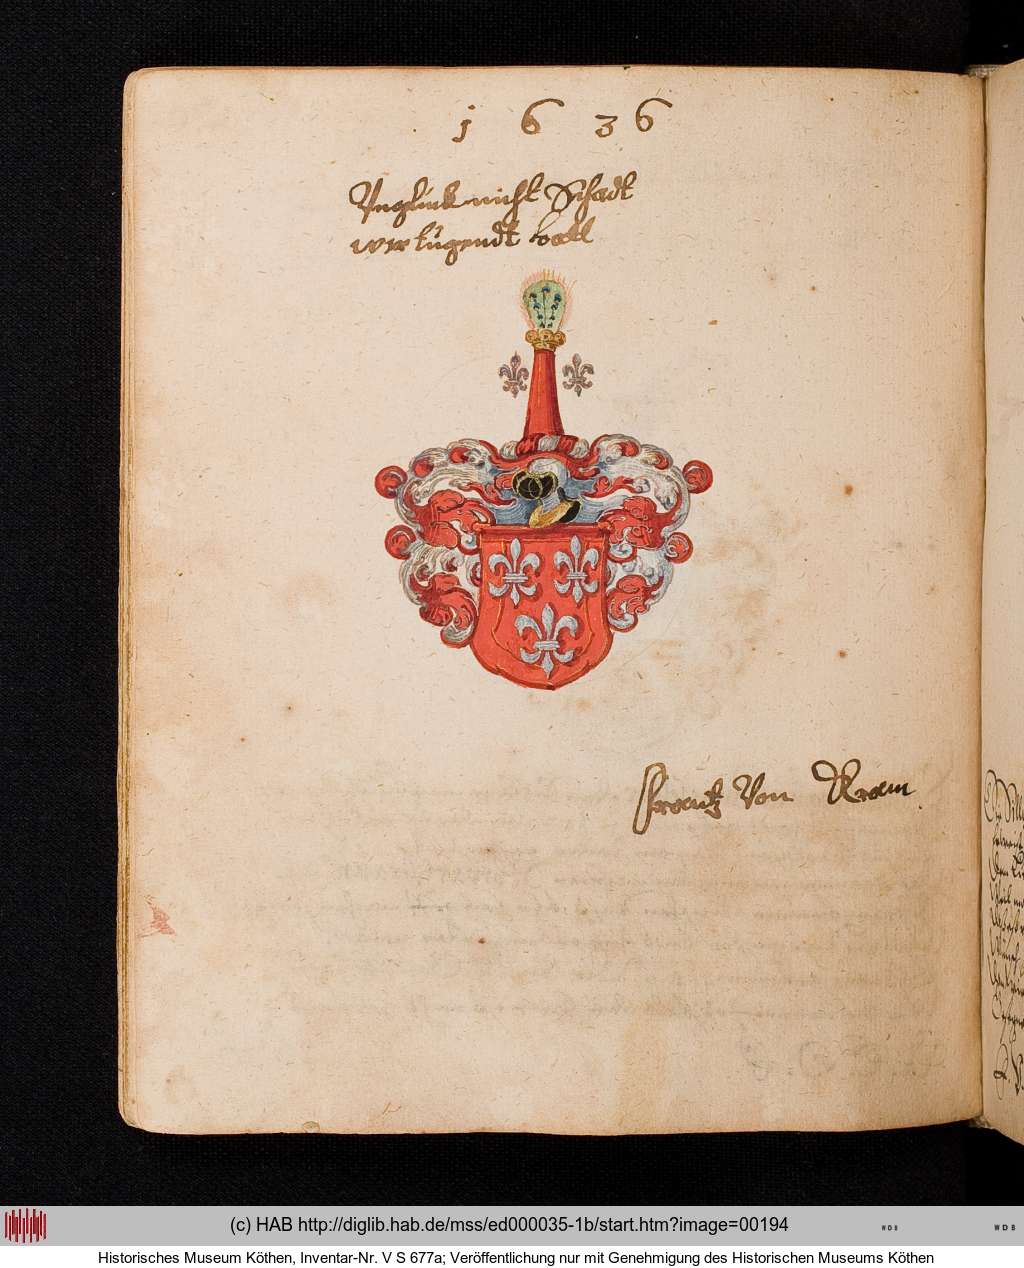 1 6 3 6
Vnglück nicht Schadt
wer tugendt hatt
Frantz Von Kram
(c) HAB http://diglib.hab.de/mss/ed000035-1b/start.htm?image=00194
WDB
WDB
Historisches Museum Köthen, Inventar-Nr. V S 677a; Veröffentlichung nur mit Genehmigung des Historischen Museums Köthen